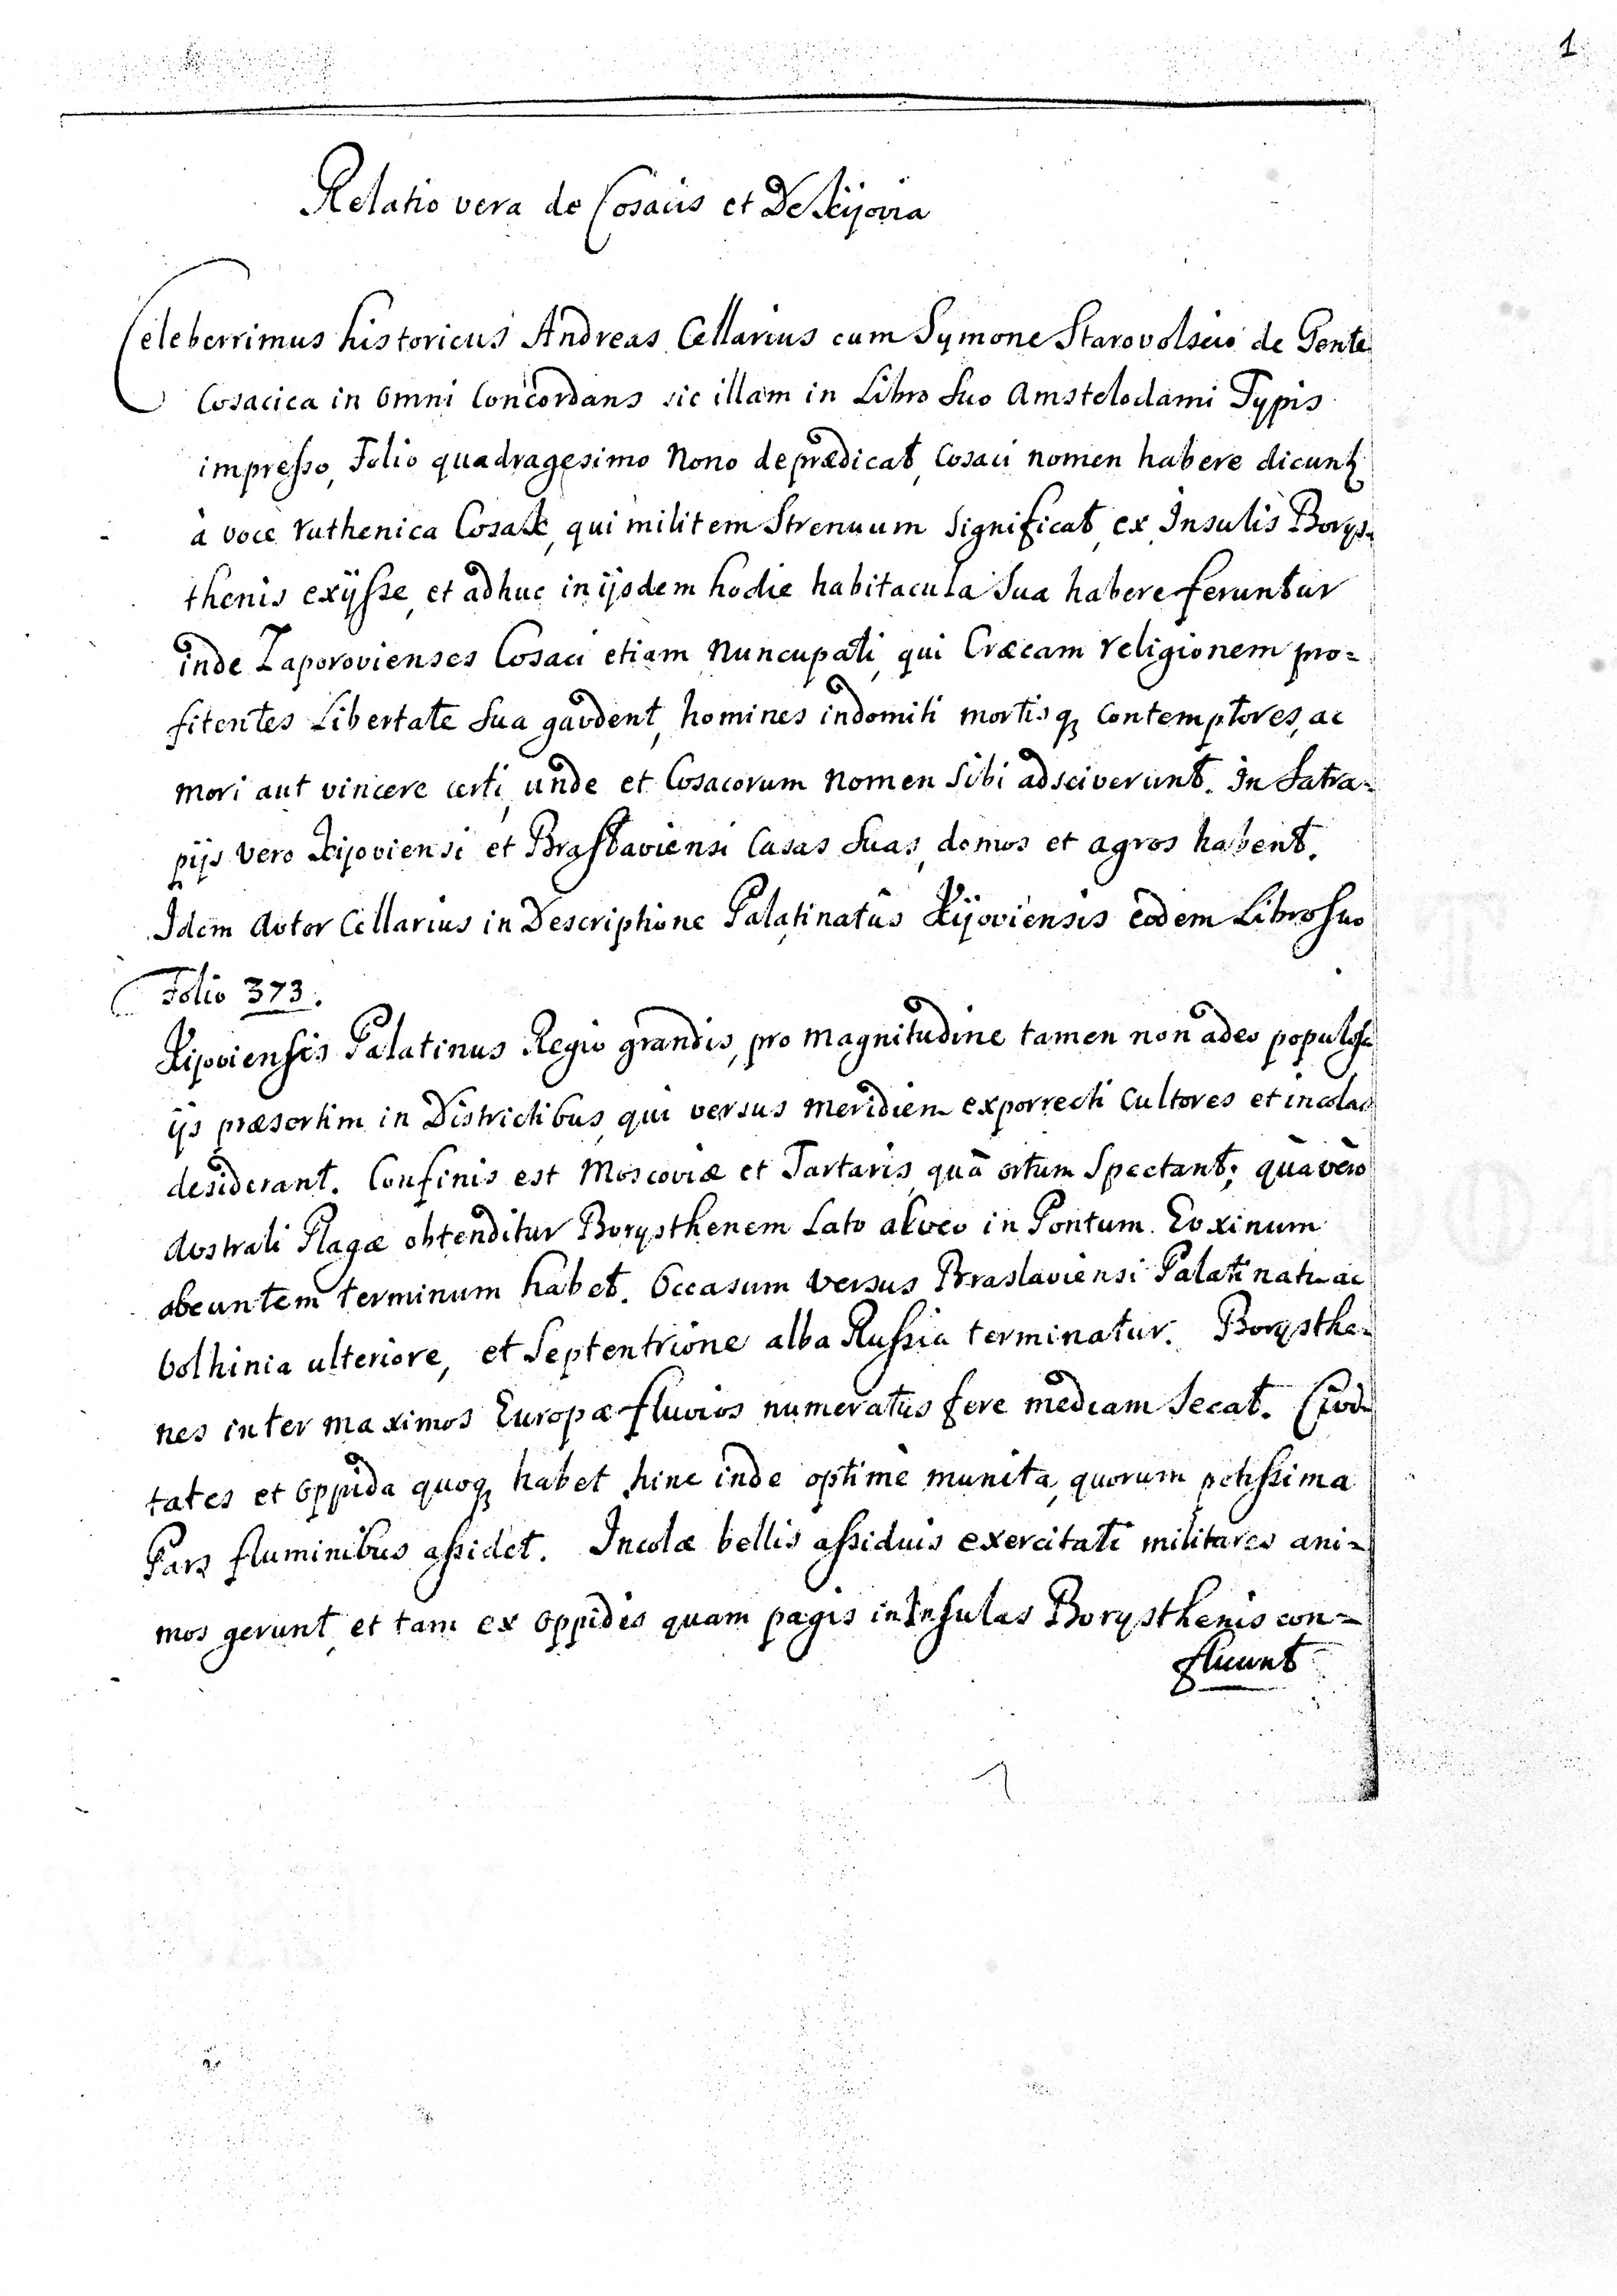 1
Relatio vera de Cosacis et De Kijovia
Celeberrimus historicus Andreas Cellarius cum Symone Starovolscio de Gente
Cosacica in omni Concordans sic illam in Libro suo Amstelodami Typis
impresso, Folio quadragesimo Nono deprædicat, Cosaci nomen habere dicunt
à voce ruthenica Cosak, qui militem Strenuum significat, ex Insulis Borys=
thenis exijsse, et adhuc in ijsdem hodie habitacula sua habere feruntur
inde Zaporovienses Cosaci etiam Nuncupati, qui Græcam religionem pro=
fitentes Libertate sua gavdent, homines indomiti mortisq; Contemptores, ac
mori aut vincere certi, unde et Cosacorum Nomen sibi adsciverunt. In Satra=
pijs vero Kijoviensi et Braslaviensi Casas suas, domos et agros habent.
Idem Avtor Cellarius in Descriptione Palatinatûs Kijoviensis eodem Libro suo
Folio 373.
Kijoviensis Palatinus Regio grandis, pro magnitudine tamen non adeo populosa
ijs præsertim in Districtibus, qui versus meridiem exporrecti Cultores et incolas
desiderant. Confinis est Moscoviæ et Tartaris, quâ ortum Spectant; quà vero
Avstrali Plagæ obtenditur Borysthenem Lato alveo in Pontum Evxinum
abeuntem terminum habet. Occasum versus Braslaviensi Palatinatu ac
Volhinia ulteriore, et Septentrione alba Russia terminatur. Borysthe=
nes inter maximos Europæ fluvios numeratus fere mediam Secat. Civi=
tates et oppida quoq; habet hinc inde optime munita, quorum potissima
Pars fluminibus assidet. Incolæ bellis assiduis exercitati militares ani=
mos gerunt, et tam ex oppidis quam pagis in Insulas Borysthenis con=
fluunt